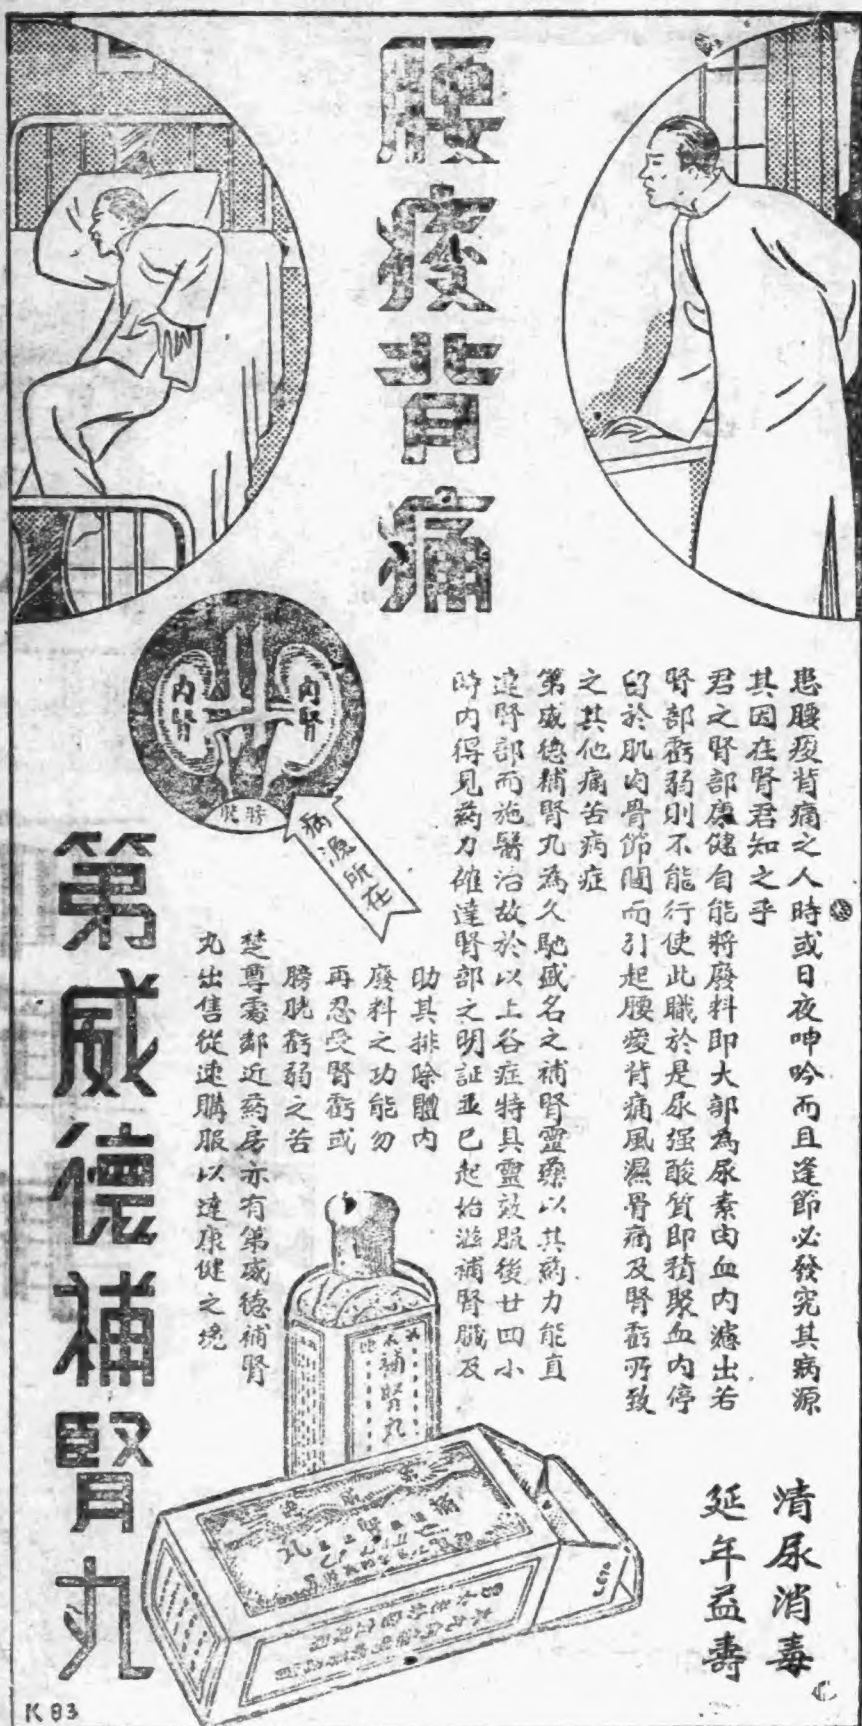 腰痠背痛
患腰痠背痛之人時或日夜呻吟而且逢節必發究其病源
其因在腎君知之乎
君之腎部康健自能將廢料即大部為尿素由血內濾出若
腎部虧弱則不能行使此職於是尿强酸質即積聚血內停
留於肌肉骨節間而引起腰痠背痛風濕骨痛及腎虧所致
之其他痛苦病症
第威德補腎丸為久馳盛名之補腎靈藥以其药力能直
達腎部而施醫治故於以上各症特具靈效服後廿四小
時內得見药力確達腎部之明証並已起始滋補腎臓及
助其排除體內
廢料之功能勿
再忍受腎虧或
膀胱虧弱之苦
楚尊處鄰近药房亦有第威德補腎
丸出售從速購服以達康健之境
清尿消毒
延年益壽
內腎
內腎
膀胱
病源所在
補腎丸
第威德補腎丸
K 83